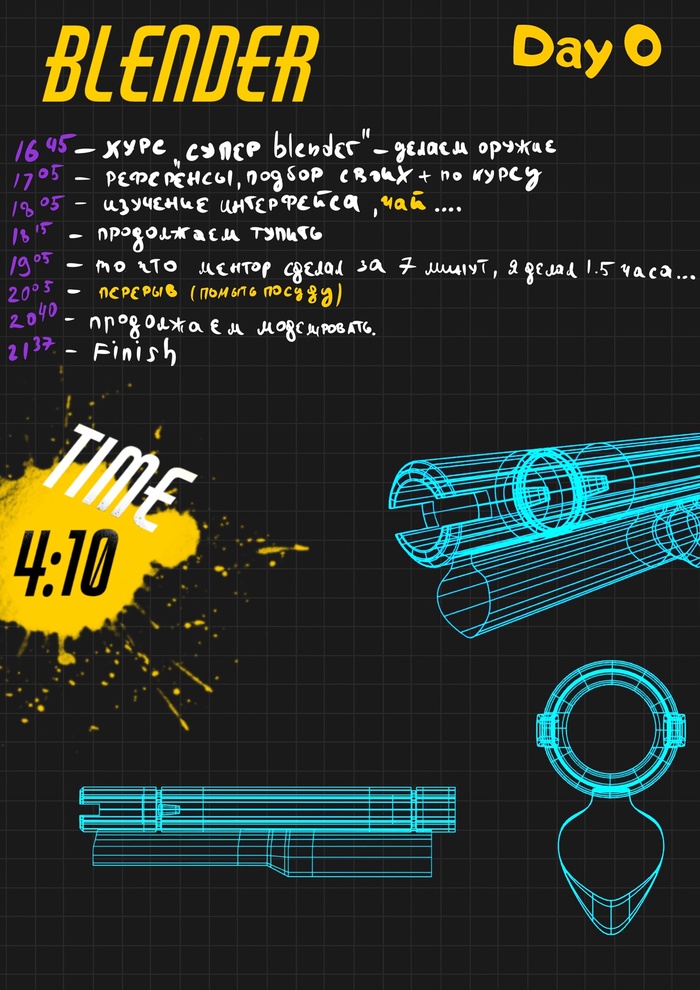 BLENDER
Day 0
16 45 – КУРС „СУПЕР blender" – делаем оружие
17 05 – РЕФЕРЕНСЫ, подбор своих + по курсу
18 05 – изучение интерфейса, чай ....
18 15 – продолжаем тупить
19 05 – то что ментор сделал за 7 минут, я делал 1.5 часа...
20 05 – ПЕРЕРЫВ (помыть посуду)
20 40 – продолжаем моделировать.
21 37 – Finish
TIME
4:10